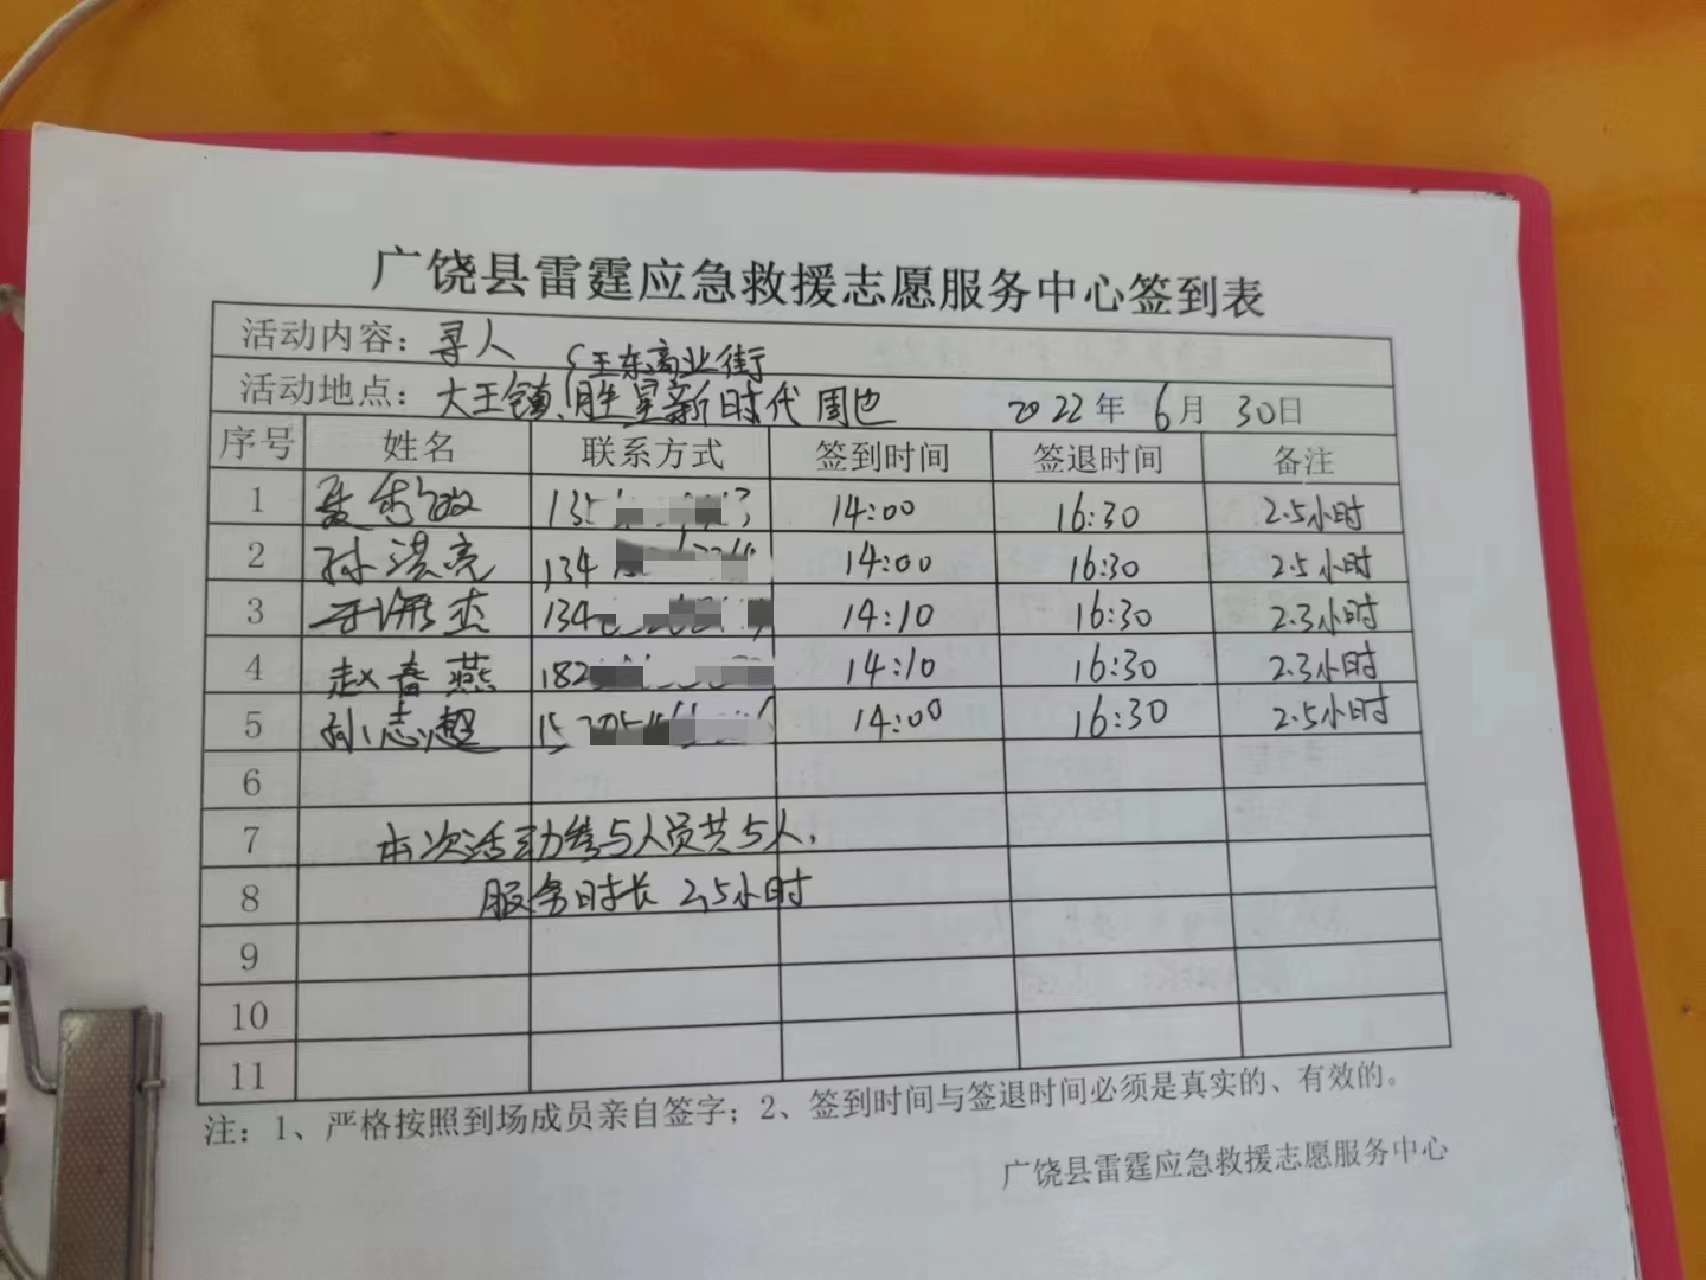 广饶县雷霆应急救援志愿服务中心签到表
活动内容：寻人
王东商业街
活动地点：大王镇、胜星新时代周边 2022年 6月 30日
序号 姓名 联系方式 签到时间 签退时间 备注
1 聂秀政 135 14:00 16:30 2.5小时
2 孙洪亮 134 14:00 16:30 2.5小时
3 134 14:10 16:30 2.3小时
4 赵春燕 182 14:10 16:30 2.3小时
5 孙志超 15 14:00 16:30 2.5小时
6
7 本次活动参与人员共5人，
8 服务时长 2.5小时
9
10
11
注：1、严格按照到场成员亲自签字；2、签到时间与签退时间必须是真实的、有效的。
广饶县雷霆应急救援志愿服务中心